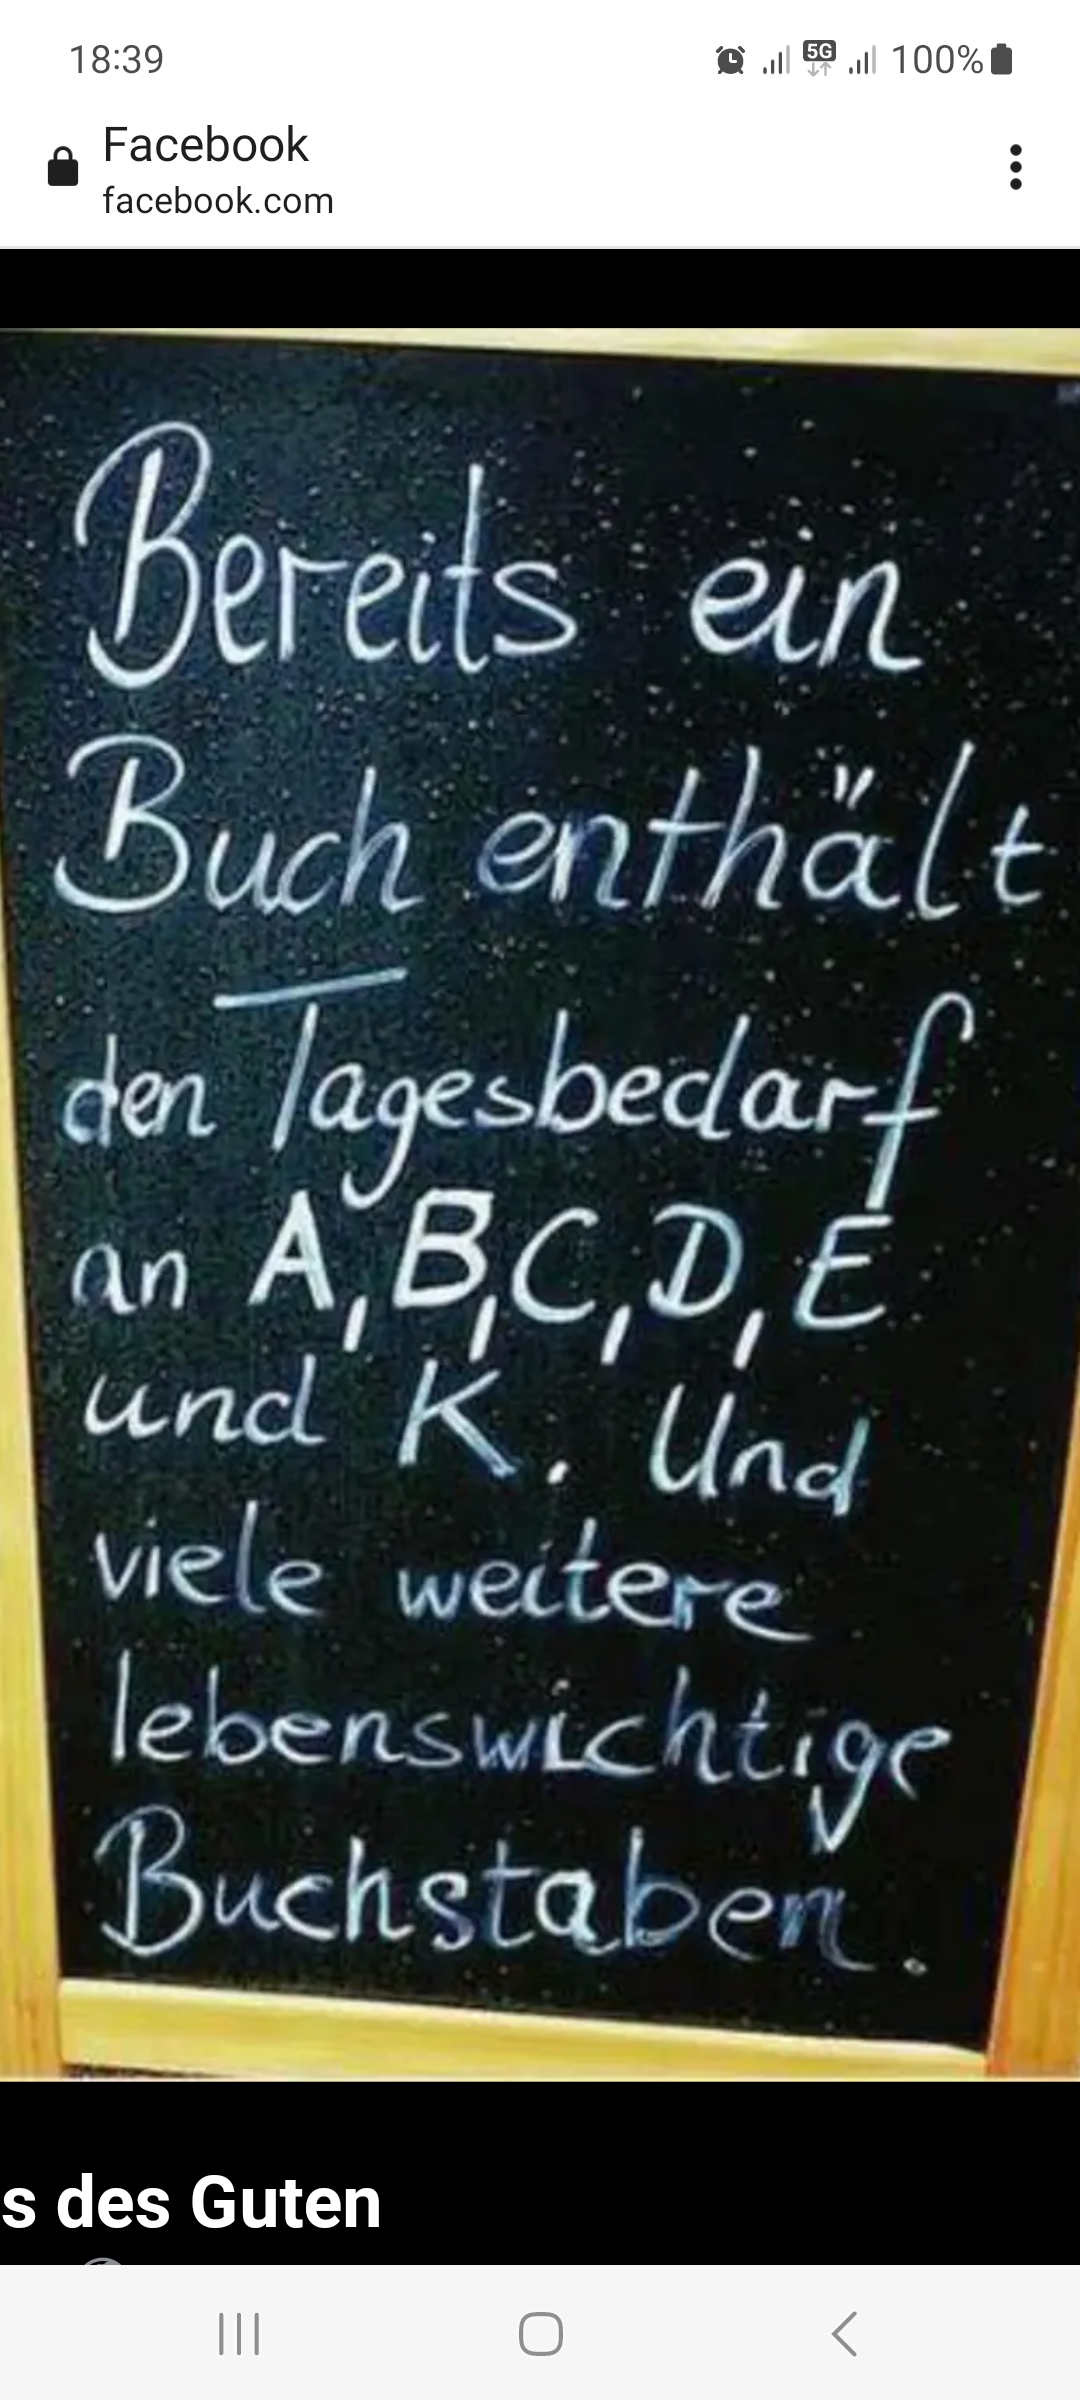 18:39
5G
100%
Facebook
facebook.com
Bereits ein
Buch enthält
den Tagesbedarf
an A, B, C, D, E
und K. Und
viele weitere
lebenswichtige
Buchstaben.
s des Guten